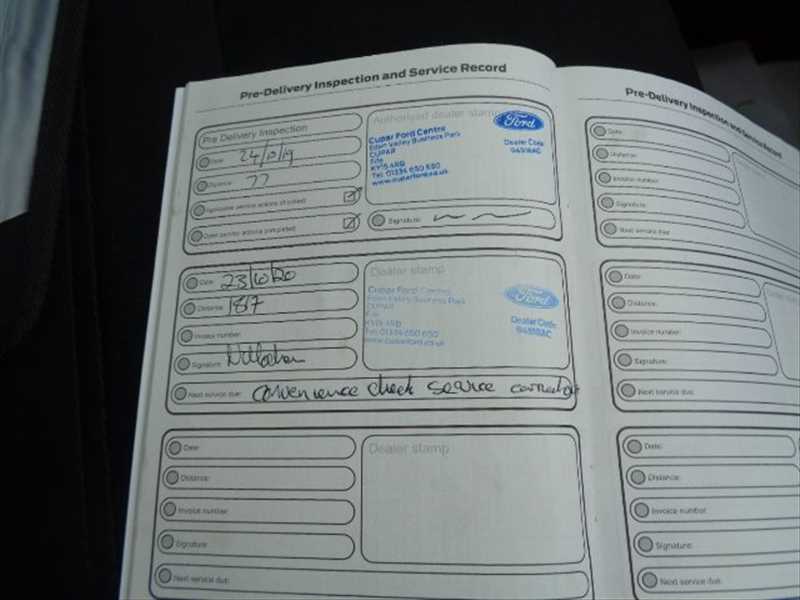 Pre-Delivery Inspection and Service Record
Pre Delivery Inspection
Date: 24/10/19
Distance: 77
Open service actions completed
Authorised dealer stamp
Ford
Cupar Ford Centre
Eden Valley Business Park
CUPAR
Fife
KY15 4RB
Tel. 01334 650 650
www.cuparford.co.uk
Dealer Code
Signature:
Date: 23/10/20
Distance: 1817
Invoice number:
Signature:
Next service due: convenience check service
Dealer stamp
Ford
Cupar Ford Centre
Eden Valley Business Park
CUPAR
Fife
KY15 4RB
Tel. 01334 650 650
www.cuparford.co.uk
Dealer Code
Date:
Distance:
Invoice number:
Signature:
Next service due:
Dealer stamp
Pre-Delivery Inspection and Service Record
Date:
Distance:
Invoice number:
Signature:
Next service due:
Date:
Distance:
Invoice number:
Signature:
Next service due:
Date:
Distance:
Invoice number:
Signature:
Next service due: